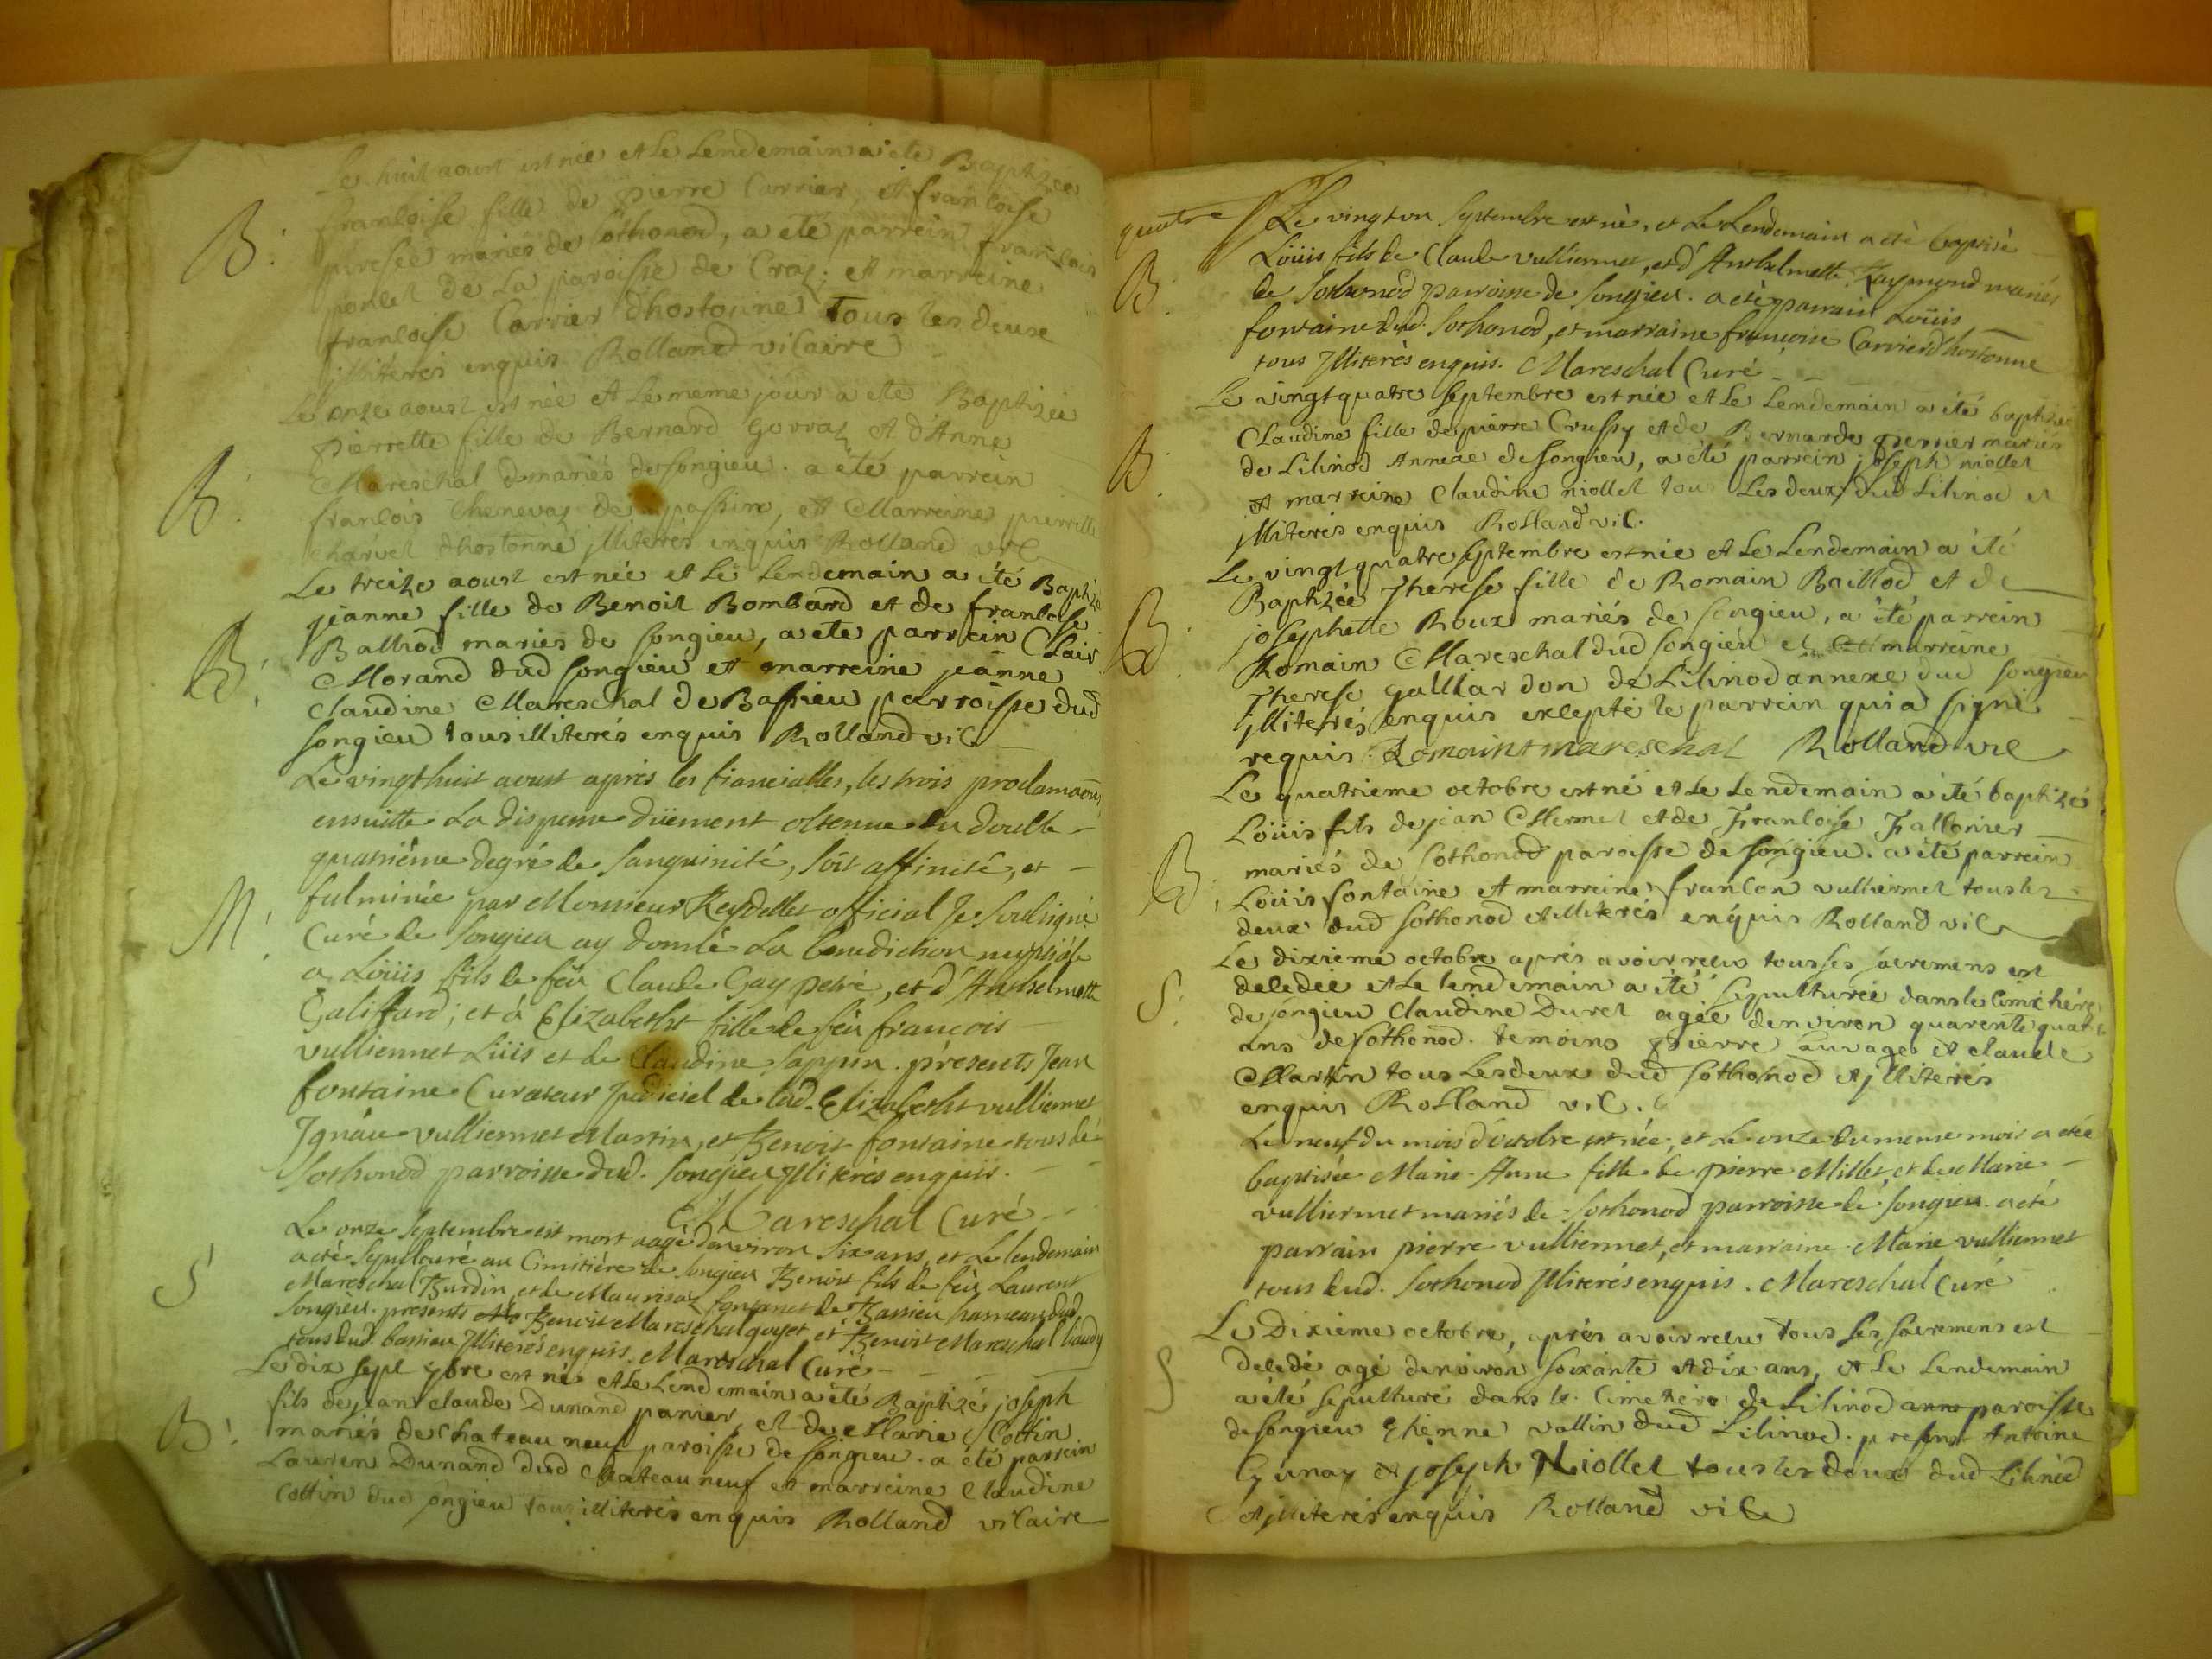 Le huit aoust est née et Le Lendemain a été Baptizée
francoise fille de pierre Carrier, et francoise
mariés de sothonod, a été parrein francois
poncet de La paroisse de Craz, et marreine
francoise Carrier dhostonne Tous les deux
illiterés enquis Rolland vicaire
B.
Le onze aoust est née et Le meme jour a ete Baptizée
pierrette fille de Bernard Gorraz et d'Anne
Mareschal mariés de songieu. a été parrein
francois Chenevaz de passin, et Marreine pierrette
Charvet dhostonne jlliterés enquis Rolland vic
B.
Le treize aoust est née et Le Lendemain a été Baptizée
jeanne fille de Benoit Bombard et de francoise
Balliod mariés de songieu, a ete parrein Clair
Morand dud songieu et marreine jeanne
Claudine Mareschal de Bassieu parroisse dud
songieu tous illiterés enquis Rolland vic
B.
Le vingt huit aoust après les fiancialles, les trois proclamaons,
ensuitte La dispense düement obtenue du double
quatrième degré de sanguinité, soit affinité, et
fulminée par Monsieur Reydellet official Je soussigné
Curé de Songieu ay donné La benediction nuptiale
M.
a Loüis fils de feu Claude Gay petré, et d'Anthelmette
Galiffard, et à Elizabetht fille de feu françois
vulliermet Lüis et de Claudine Sappin. présents Jean
fontaine Curateur Judiciel de lad. Elizabetht vulliermet
Ignace vulliermet Martin, et Benoit fontaine tous de
Sothonod parroisse dud. Songieu Illiterés enquis.
Mareschal Curé
Le onze Septembre est mort aagé d'environ six ans, et Le lendemain
a été Sepulturé au Cimitière de Songieu Benoit fils de feu Laurent
S
Mareschal Burdin, et de Maurisaz fontanet de Bassieu hameau dud.
Songieu. présents Benoit Mareschal goyet et Benoit Mareschal baudy
tous dud. bassieu Illiterés enquis. Mareschal Curé
Le dix sept 7bre est né et Le Lendemain a été Baptizé joseph
fils de jean claude Dunand panier, et de Marie Cottin
B.
mariés de Chateauneuf paroisse de songieu. a été parrein
Laurent Dunand dud Chateauneuf et marreine Claudine
Cottin dud songieu tous illiterés enquis Rolland vicaire
quatre
Le vingt un Septembre est né, et Le Lendemain a été baptisé
Loüis fils de Claude vulliermet, et d'Anthelmette Raymond mariés
B.
de Sothonod parroisse de Songieu. a été parrain Loüis
fontaine dud. Sothonod, et marraine françoise Carrier d'hostonne
tous Illiterés enquis. Mareschal Curé
Le vingt quatre septembre est née et Le Lendemain a été baptizée
Claudine fille de pierre Crussy et de Bernarde perrier mariés
B.
de Lilinod Annexe de songieu, a été parrein joseph niollet
et marreine Claudine niollet tous Les deux dud Lilinod et
jlliterés enquis Rolland vic.
Le vingt quatre septembre est née et Le Lendemain a été
Baptizée Therese fille de Romain Baillod et de
B.
josephette Roux mariés de songieu, a été parrein
Romain Mareschal dud songieu et marreine
Therese gaillardon de Lilinod annexe dud songieu
jlliterés enquis excepté le parrein qui a signé
requis. Romaint mareschal Rolland vic
Le quatrieme octobre est né et Le Lendemain a été baptizé
Loüis fils de jean Mermet et de Francoise Fallonier
mariés de sothonod paroisse de songieu. a été parrein
B.
Loüis fontaine et marreine francon vulliermet tous les
deux dud sothonod et illiterés enquis Rolland vic
Le dixieme octobre aprés avoir recu tous ses sacremens est
S.
decedée et Le lendemain a été sepulturée dans le cimithére
de songieu Claudine Duret agée denviron quarente quatre
ans de sothonod. temoins pierre auvage et claude
Martin tous Les deux dud sothonod et jlliterés
enquis Rolland vic.
Le neuf du mois d'octobre est née, et Le onze du meme mois a été
baptisée Marie-Anne fille de pierre Millet, et de Marie
vulliermet mariés de Sothonod parroisse de Songieu. a été
parrain pierre vulliermet, et marraine Marie vulliermet
tous dud. Sothonod Illiterés enquis. Mareschal Curé
Le Dixieme octobre, aprés avoir recu tous ses sacremens est
S
decedé agé denviron soixante et dix ans, et Le Lendemain
a été sepulturé dans le cimethére de Lilinod anne paroisse
de songieu Ethienne vallin dud Lilinod. presens Antoine
Gunaz et joseph Niollet tous les deux dud Lilinod
et jlliterés enquis Rolland vic